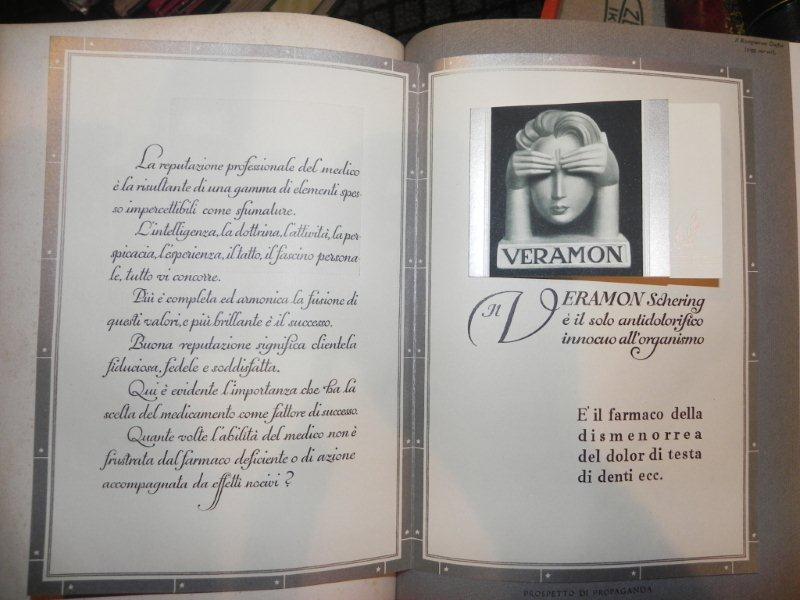 La reputazione professionale del medico
è la risultante di una gamma di elementi spes-
so impercettibili come sfumature.
L'intelligenza, la dottrina, l'attività, la per-
spicacia, l'esperienza, il tatto, il fascino persona-
le, tutto vi concorre.
Più è completa ed armonica la fusione di
questi valori, e più brillante è il successo.
Buona reputazione significa clientela
fiduciosa, fedele e soddisfatta.
Qui è evidente l'importanza che ha la
scelta del medicamento come fattore di successo.
Quante volte l'abilità del medico non è
frustrata dal farmaco deficiente o di azione
accompagnata da effetti nocivi?
Il Risorgimento Grafico
VERAMON
Il VERAMON Schering
è il solo antidolorifico
innocuo all'organismo
E' il farmaco della
dismenorrea
del dolor di testa
di denti ecc.
PROSPETTO DI PROPAGANDA